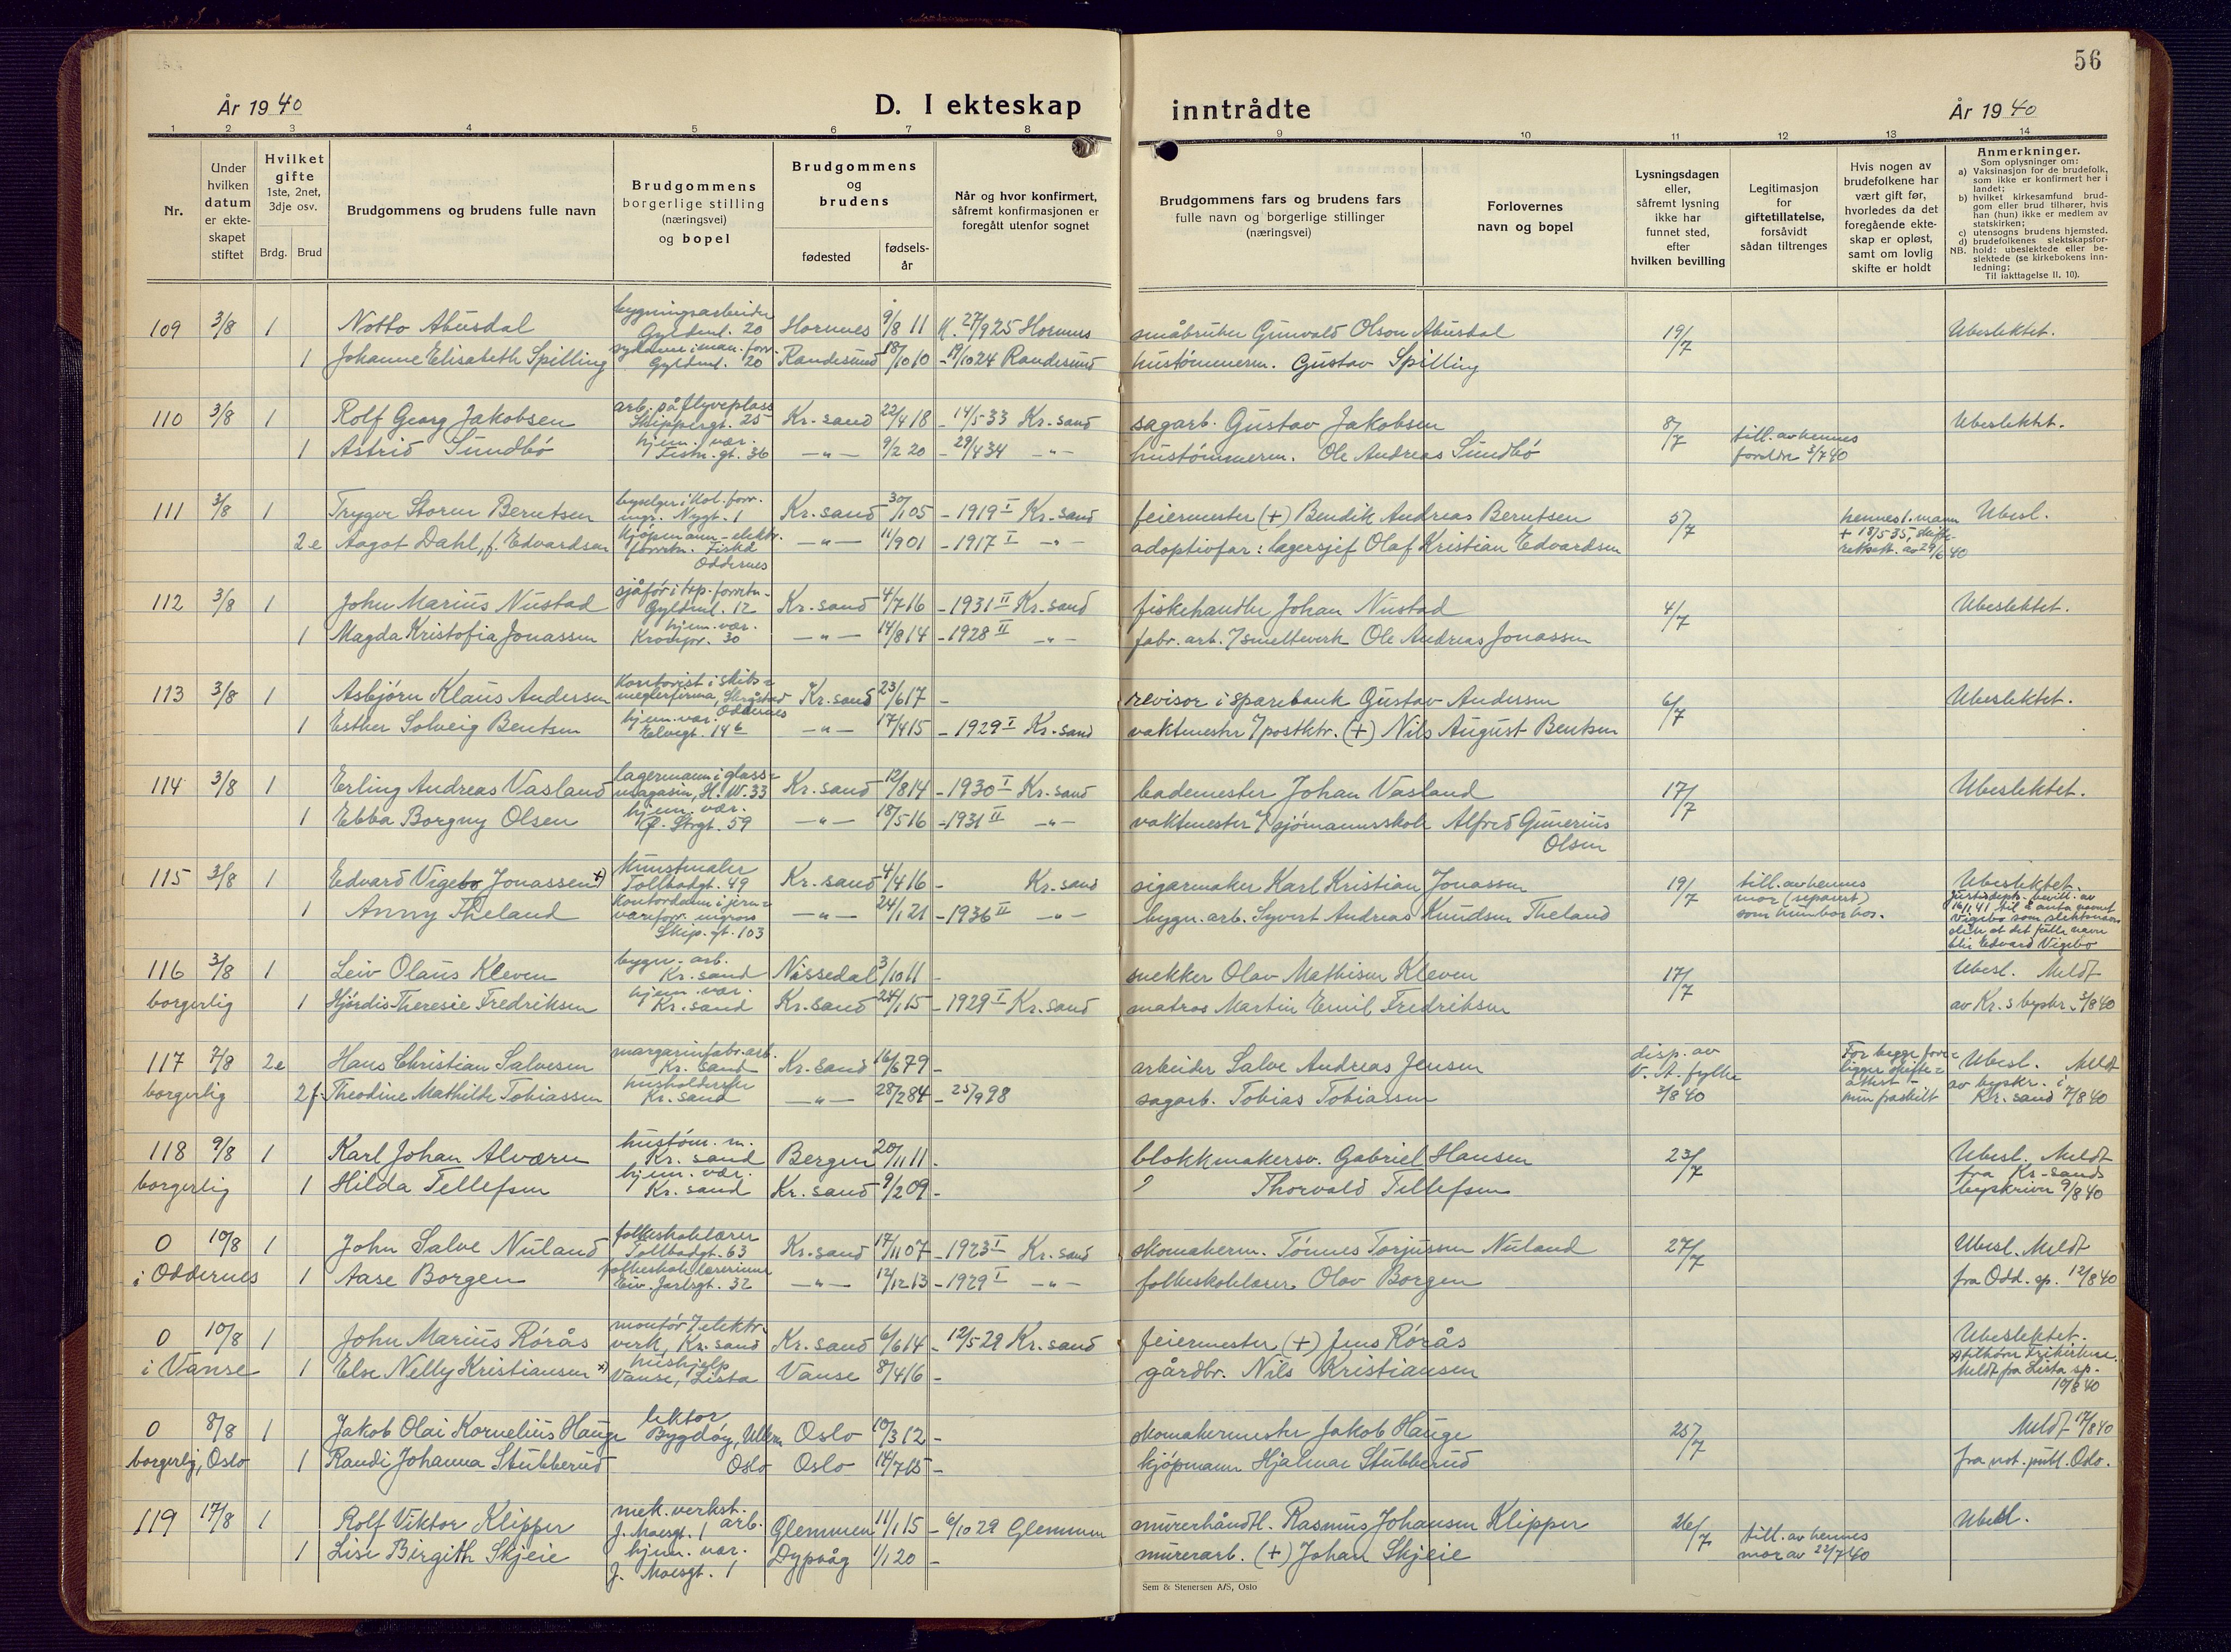 56
År 1940
D. I ekteskap inntrådte
År 1940
1 2 3 4 5 6 7 8 9 10 11 12 13 14
Nr.
Under hvilken datum er ekteskapet stiftet
Hvilket gifte 1ste, 2net, 3dje osv.
Brdg. Brud
Brudgommens og brudens fulle navn
Brudgommens borgerlige stilling (næringsvei) og bopel
Brudgommens og brudens
fødested
fødselsår
Når og hvor konfirmert, såfremt konfirmasjonen er foregått utenfor sognet
Brudgommens fars og brudens fars fulle navn og borgerlige stillinger (næringsvei)
Forlovernes navn og bopel
Lysningsdagen eller, såfremt lysning ikke har funnet sted, efter hvilken bevilling
Legitimasjon for giftetillatelse, forsåvidt sådan tiltrenges
Hvis nogen av brudefolkene har vært gift før, hvorledes da det foregående ekteskap er opløst, samt om lovlig skifte er holdt
Anmerkninger.
Som oplysninger om:
a) Vaksinasjon for de brudefolk, som ikke er konfirmert her i landet;
b) hvilket kirkesamfund brudgom eller brud tilhører, hvis han (hun) ikke er medlem av statskirken;
c) utensogns brudens hjemsted.
d) brudefolkenes slektskapsforhold: ubeslektede eller beslektede (se kirkebokens innledning;
NB.
Til iakttagelse II. 10).
109 3/8 1 Notto Abusdal bygningsarbeider Gyldenl. 20 Hornnes 9/8 11 K. 27/9 25 Hornnes småbruker Gunvald Olson Abusdal 19/7 Ubeslektet.
1 Johanne Elisabeth Spilling Gyldenl. 20 Randesund 18/10 10 - 19/10 24 Randesund hustømmerm. Gustav Spilling
110 3/8 1 Rolf Georg Jakobsen arb. på flyveplass Skippergt. 25 Kr.sand 22/4 18 - 14/5 33 Kr.sand sagarb. Gustav Jakobsen 8/7 till. av hennes foreldre 3/7 40 Ubeslektet.
1 Astrid Sundbø hjem. vær. Tistn.gt. 36 -"- 9/2 20 - 29/4 34 -"- hustømmerm. Ole Andreas Sundbø
111 3/8 1 Trygve Storm Berntsen Nygt. 1 Kr.sand 30/1 05 - 1919 I Kr.sand feiermester (+) Bendik Andreas Berntsen 5/7 hennes 1. mann + 18/5 35, skifterettsatt. av 29/6 40 Ubesl.
2e Aagot Dahl, f. Edvardsen kjøpmann - elektr. forretn. Fiskå Oddernes -"- 11/9 01 - 1917 I -"- adoptivfar: lagersjef Olaf Kristian Edvardsen
112 3/8 1 John Marius Nustad sjåfør i exp. forretn. Gyldenl. 12 Kr.sand 4/7 16 - 1931 II Kr.sand fiskehandler Johan Nustad 4/7 Ubeslektet.
1 Magda Kristofia Jonassen hjem. vær. Kronpr. 30 -"- 14/8 14 - 1928 II -"- fabr. arb. v/ smelteverk Ole Andreas Jonassen
113 3/8 1 Asbjørn Klaus Andersen kontorist i skibsmeglerfirma, Oddernes Kr.sand 23/6 17 - revisor i sparebank Gustav Andersen 6/7 Ubeslektet.
1 Esther Solveig Bentsen hjem. vær. Elvegt. 14b -"- 17/4 15 - 1929 I Kr.sand vaktmester v/ postktr. (+) Nils August Bentsen
114 3/8 1 Erling Andreas Vasland lagermann i glassmagasin, H. W. 33 Kr.sand 12/8 14 - 1930 I Kr.sand bademester Johan Vasland 17/7 Ubeslektet.
1 Ebba Borgny Olsen hjem. vær. Ø. Strgt. 59 -"- 18/5 16 - 1931 II -"- vaktmester v/ sjømannsskole Alfred Gunerius Olsen
115 3/8 1 Edvard Vigebo Jonassen x) kunstmaler Tollbodgt. 49 Kr.sand 4/4 16 - Kr.sand sigarmaker Karl Kristian Jonassen 19/7 till. av hennes mor (separert) som hun bor hos. Ubeslektet. Justisdepts. bevill. av 16/1 41 til å anta navnet Vigebo som slektsnavn slik at det fulle navn blir Edvard Vigebo
1 Anny Theland kontordame i jernvareforr. engros Skip.gt. 103 -"- 24/1 21 - 1936 II -"- bygn.arb. Syvert Andreas Knudsen Theland
116 3/8 1 Leiv Olaus Kleven bygn. arb. Kr.sand Nissedal 3/10 11 - snekker Olav Mathisen Kleven 17/7 Ubesl. Meldt
borgerlig 1 Hjørdis Theresie Fredriksen hjem. vær. Kr.sand Kr.sand 24/1 15 - 1929 I Kr.sand matros Martin Emil Fredriksen av Kr.s byskr. 3/8 40
117 7/8 2e Hans Christian Salvesen margarinfabr.arb. Kr.sand Kr.sand 16/6 79 - arbeider Salve Andreas Jensen disp. av V. A. fylke 3/8 40 For begge foreligger skifteattest - hun fraskilt Ubesl. Meldt av byskr. i Kr.sand 7/8 40
borgerlig 2f. Theodine Mathilde Tobiassen husholderske Kr.sand -"- 28/2 84 - 25/9 98 sagarb. Tobias Tobiassen
118 9/8 1 Karl Johan Alværn hustøm. m. Kr.sand Bergen 20/11 11 - blokkmakersv. Gabriel Hansen 23/7 Ubesl. Meldt fra Kr.sands byskriver 9/8 40
borgerlig 1 Hilda Tellefsen hjem. vær. Kr.sand Kr.sand 9/2 09 - ? Thorvald Tellefsen
0 10/8 1 John Salve Nuland folkeskolelærer Tollbodgt. 63 Kr.sand 17/11 07 - 1923 I Kr.sand skomakerm. Tønnes Torjussen Nuland 27/7 Ubesl. Meldt
i Oddernes 1 Aase Borgen folkeskolelærerinne Eiv. Jarlsgt. 32 -"- 12/12 13 - 1929 I -"- folkeskolelærer Olav Borgen fra Odd. sp. 12/8 40
0 10/8 1 John Marius Rørås montør v/ elektr. verk, Kr.sand Kr.sand 6/6 14 - 12/5 29 Kr.sand feiermester (+) Jens Rørås Ubeslektet.
i Vanse 1 Else Nelly Kristiansen x) hushjelp Vanse, Lista Vanse 8/4 16 - gårdbr. Nils Kristiansen x) tilhører Frikirken. Meldt fra Lista sp. 10/8 40
0 8/8 1 Jakob Olai Kornelius Hauge lektor Bygdøy, Ullern Oslo 10/3 12 - skomakermester Jakob Hauge 25/7 Meldt 17/8 40
borgerlig, Oslo 1 Randi Johanna Stubberud Oslo Oslo 14/7 15 - kjøpmann Hjalmar Stubberud fra not. publ. Oslo.
119 17/8 1 Rolf Viktor Klipper mek. verkst. arb. J. Moesgt. 1 Glemmen 11/1 15 - 6/10 29 Glemmen murerhåndtl. Rasmus Johansen Klipper 26/7 till. av hennes mor av 22/7 40 Ubesl.
1 Lise Birgith Skjeie hjem. vær. J. Moesgt. 1 Dypvåg 1/1 20 - murerarb. (+) Johan Skjeie
Sem & Stenersen A/S, Oslo